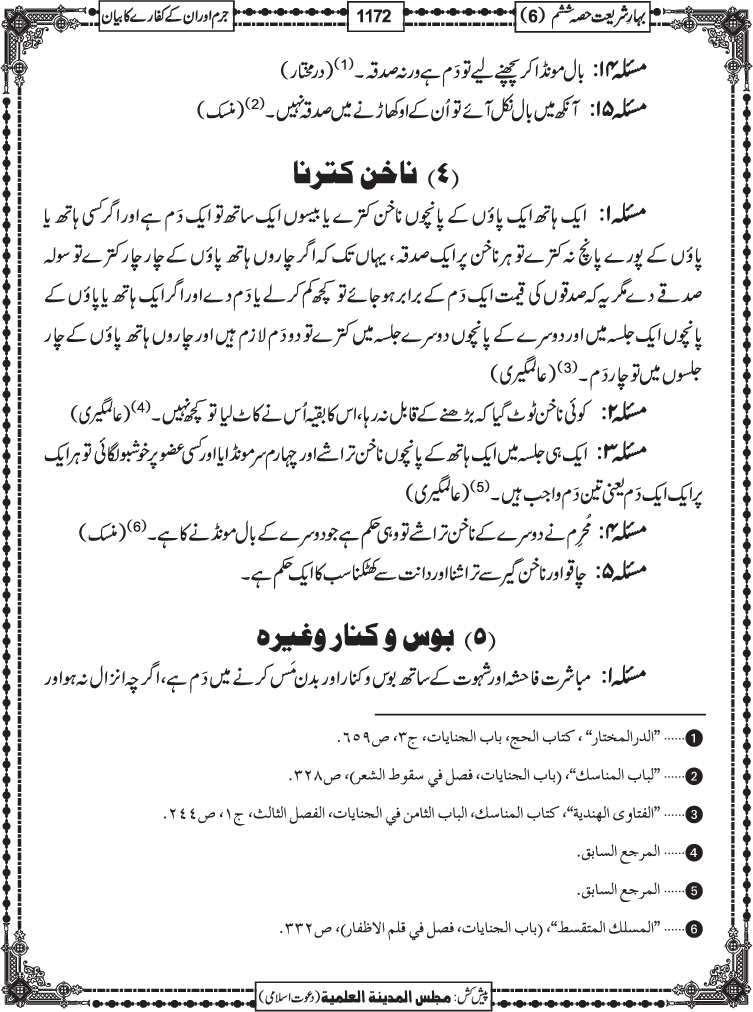 بہار شریعت حصہ ششم (6)
1172
جرم اور ان کے کفارے کا بیان
مسئلہ ۱۴: بال مونڈا کر پچھنے لیے تو دَم ہے ورنہ صدقہ۔(1) (درمختار)
مسئلہ ۱۵: آنکھ میں بال نکل آئے تو اُن کے اوکھاڑنے میں صدقہ نہیں۔(2) (منسک)
(۴) ناخن کترنا
مسئلہ ۱: ایک ہاتھ ایک پاؤں کے پانچوں ناخن کترے یا بیسوں ایک ساتھ تو ایک دَم ہے اور اگر کسی ہاتھ یا
پاؤں کے پورے پانچ نہ کترے تو ہر ناخن پر ایک صدقہ، یہاں تک کہ اگر چاروں ہاتھ پاؤں کے چار چار کترے تو سولہ
صدقے دے مگر یہ کہ صدقوں کی قیمت ایک دَم کے برابر ہوجائے تو کچھ کم کرلے یا دَم دے اور اگر ایک ہاتھ یا پاؤں کے
پانچوں ایک جلسہ میں اور دوسرے کے پانچوں دوسرے جلسہ میں کترے تو دو دَم لازم ہیں اور چاروں ہاتھ پاؤں کے چار
جلسوں میں تو چار دَم۔(3) (عالمگیری)
مسئلہ ۲: کوئی ناخن ٹوٹ گیا کہ بڑھنے کے قابل نہ رہا، اس کا بقیہ اُس نے کاٹ لیا تو کچھ نہیں۔(4) (عالمگیری)
مسئلہ ۳: ایک ہی جلسہ میں ایک ہاتھ کے پانچوں ناخن تراشے اور چہارم سر مونڈایا اور کسی عضو پر خوشبو لگائی تو ہر ایک
پر ایک ایک دَم یعنی تین دَم واجب ہیں۔(5) (عالمگیری)
مسئلہ ۴: مُحرِم نے دوسرے کے ناخن تراشے تو وہی حکم ہے جو دوسرے کے بال مونڈنے کا ہے۔(6) (منسک)
مسئلہ ۵: چاقو اور ناخن گیر سے تراشنا اور دانت سے کھٹکنا سب کا ایک حکم ہے۔
(۵) بوس و کنار وغیرہ
مسئلہ ۱: مباشرت فاحشہ اور شہوت کے ساتھ بوس و کنار اور بدن مَس کرنے میں دَم ہے، اگرچہ انزال نہ ہو اور
1 ...... "الدرالمختار" ، كتاب الحج، باب الجنايات، ج٣، ص٦٥٩.
2 ...... "لباب المناسك"، (باب الجنايات، فصل في سقوط الشعر)، ص٣٢٨.
3 ...... "الفتاوى الهندية"، كتاب المناسك، الباب الثامن في الجنايات، الفصل الثالث، ج١، ص٢٤٤.
4 ...... المرجع السابق.
5 ...... المرجع السابق.
6 ...... "المسلك المتقسط"، (باب الجنايات، فصل في قلم الاظفار)، ص٣٣٢.
پیش کش: مجلس المدينة العلمية (دعوت اسلامی)